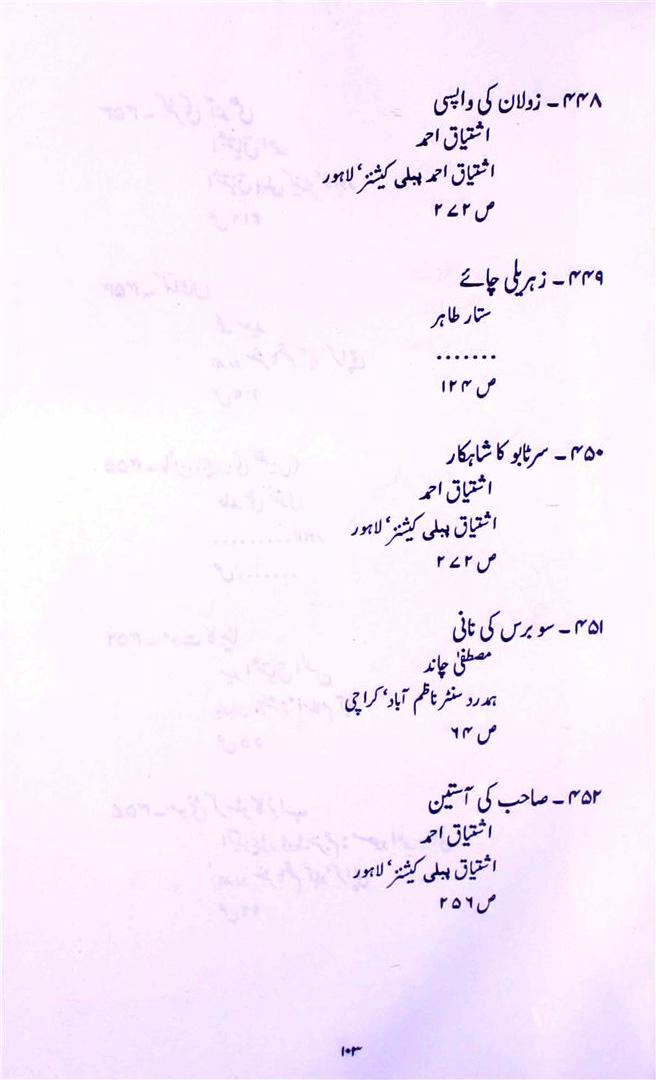 ۴۴۸ ۔ زولان کی واپسی
اشتیاق احمد
اشتیاق احمد پبلی کیشنز' لاہور
ص ۲۷۲
۴۴۹ ۔ زہریلی چائے
ستار طاہر
.......
ص ۱۲۴
۴۵۰ ۔ سرٹابو کا شاہکار
اشتیاق احمد
اشتیاق پبلی کیشنز' لاہور
ص ۲۷۲
۴۵۱ ۔ سو برس کی نانی
مصطفیٰ چاند
ہمدرد سنٹر ناظم آباد' کراچی
ص ۶۴
۴۵۲ ۔ صاحب کی آستین
اشتیاق احمد
اشتیاق پبلی کیشنز' لاہور
ص ۲۵۶
۱۰۳